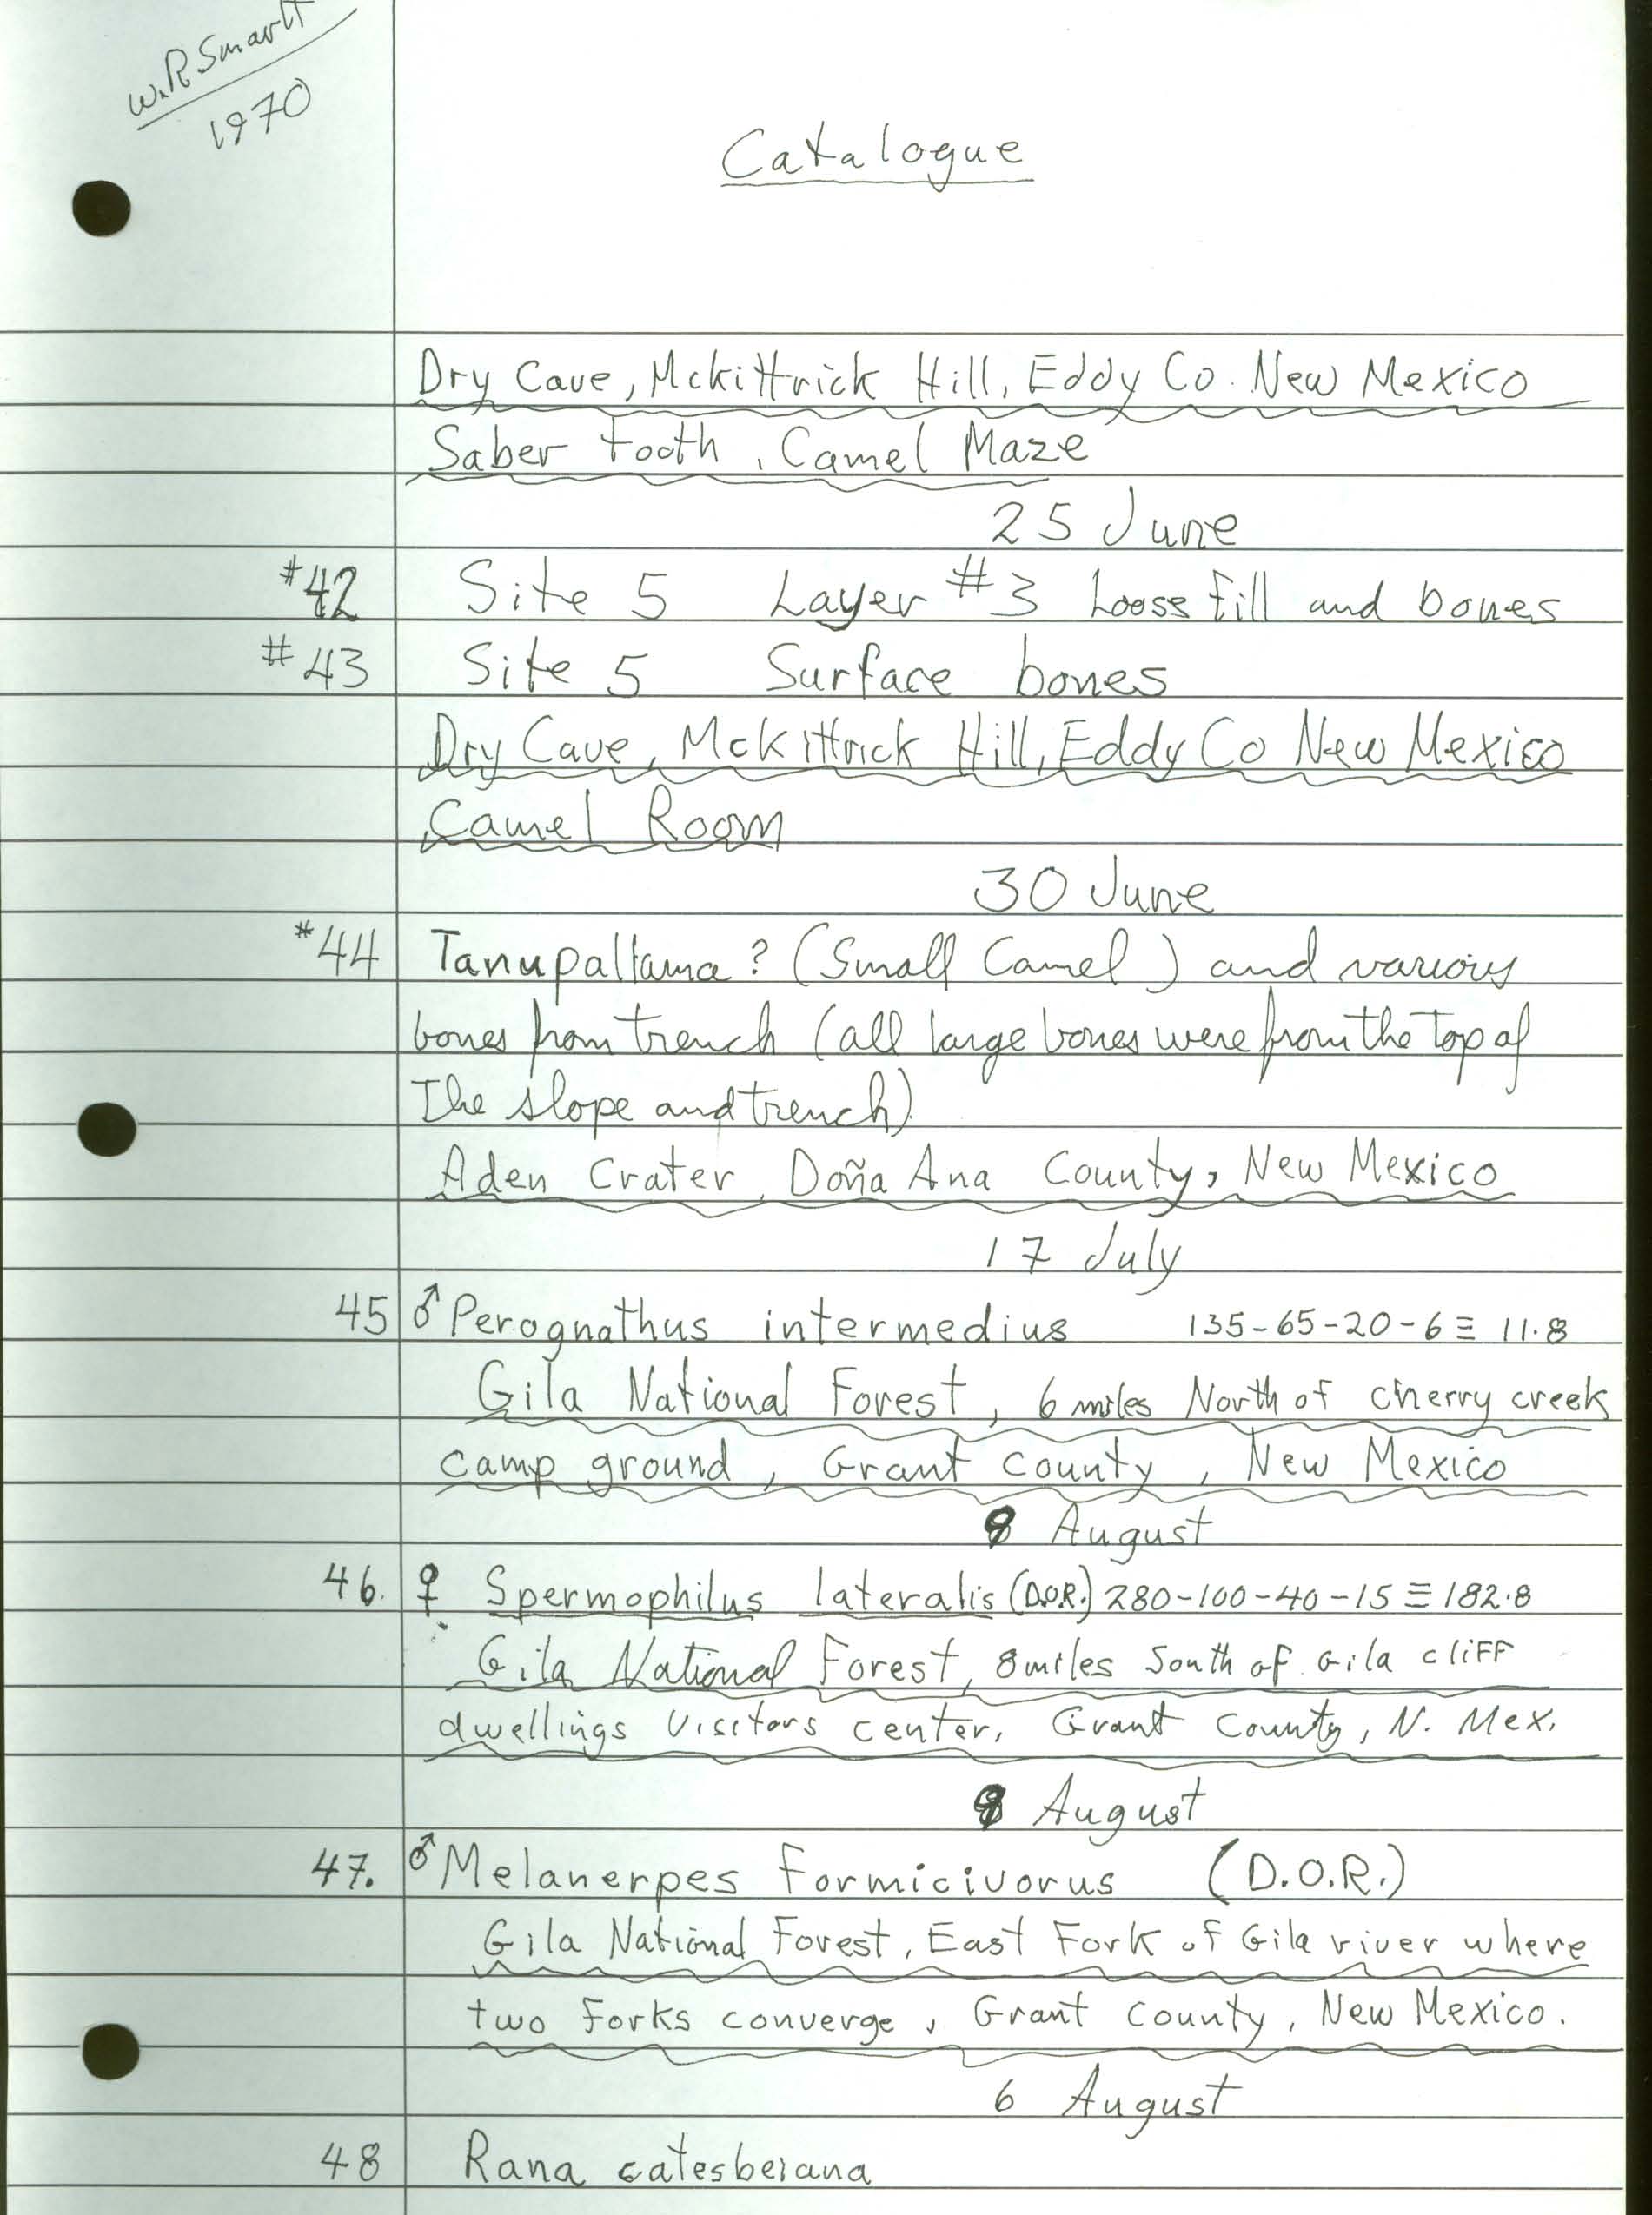 W.R Smartt
1970
Catalogue
Dry Cave, McKittrick Hill, Eddy Co. New Mexico
Saber tooth, Camel Maze
25 June
#42 Site 5 Layer #3 Loose fill and bones
#43 Site 5 Surface bones
Dry Cave, McKittrick Hill, Eddy Co New Mexico
Camel Room
30 June
#44 Tanupallama? (Small Camel) and various
bones from trench (all large bones were from the top of
the slope and trench)
Aden Crater, Doña Ana County, New Mexico
17 July
45 ♂ Perognathus intermedius 135-65-20-6 ≡ 11.8
Gila National Forest, 6 miles North of cherry creek
camp ground, Grant County, New Mexico
8 August
46. ♀ Spermophilus lateralis (D.O.R.) 280-100-40-15 ≡ 182.8
Gila National Forest, 8 miles South of Gila cliff
dwellings Visitors center, Grant County, N. Mex.
8 August
47. ♂ Melanerpes formicivorus (D.O.R.)
Gila National Forest, East Fork of Gila river where
two forks converge, Grant County, New Mexico.
6 August
48 Rana catesbeiana